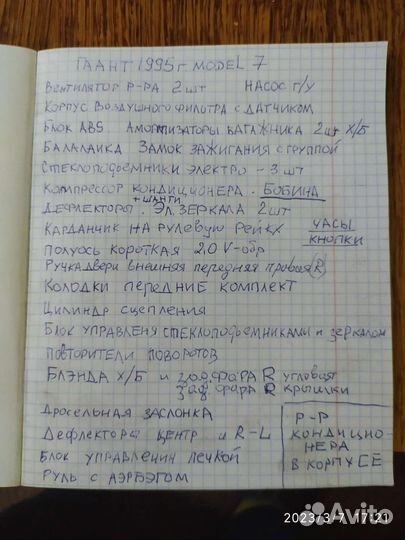 ГАЛАНТ 1995г MODEL 7
ВЕНТИЛЯТОР Р-РА 2 шт НАСОС Г/У
КОРПУС ВОЗДУШНОГО ФИЛЬТРА С ДАТЧИКОМ
БЛОК ABS. АМОРТИЗАТОРЫ БАГАЖНИКА 2шт Х/Б
БАЛАЛАЙКА ЗАМОК ЗАЖИГАНИЯ С ГРУППОЙ
СТЕКЛОПОДЪЕМНИКИ ЭЛЕКТРО - 3 шт
КОМПРЕССОР КОНДИЦИОНЕРА. БОБИНА
+ ШЛАНГИ
ДЕФЛЕКТОРЫ. ЭЛ. ЗЕРКАЛА 2 шт
КАРДАНЧИК НА РУЛЕВУЮ РЕЙКУ
ЧАСЫ
КНОПКИ
ПОЛУОСЬ КОРОТКАЯ 2,0 V-обр
РУЧКА ДВЕРИ ВНЕШНЯЯ ПЕРЕДНЯЯ ПРАВАЯ R
КОЛОДКИ ПЕРЕДНИЕ КОМПЛЕКТ
ЦИЛИНДР СЦЕПЛЕНИЯ
БЛОК УПРАВЛЕНЯ СТЕКЛОПОДЪЕМНИКАМИ И ЗЕРКАЛОМ
ПОВТОРИТЕЛИ ПОВОРОТОВ
БЛЭНДА Х/Б И зад. ФАРА R угловая
зад фара R КРЫШКИ
ДРОСЕЛЬНАЯ ЗАСЛОНКА
ДЕФЛЕКТОРЫ ЦЕНТР и R-L
БЛОК УПРАВЛЕНИЯ ПЕЧКОЙ
РУЛЬ С АЭРБЭГОМ
Р-Р
КОНДИЦИО
НЕРА
В КОРПУСЕ
2023/3/7 17:21
Avito